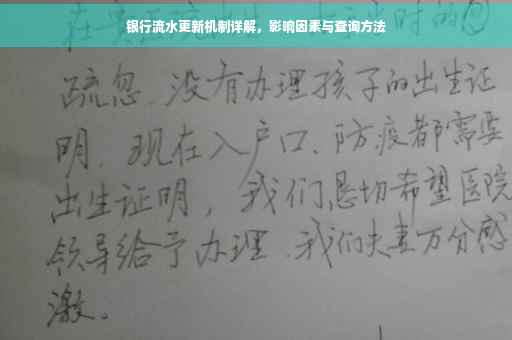 银行流水更新机制详解，影响因素与查询方法
疏忽、没有办理孩子的出生证
明、现在入户口、防疫都需要
出生证明，我们恳切希望医院
领导给予办理、我们夫妻万分感
激。